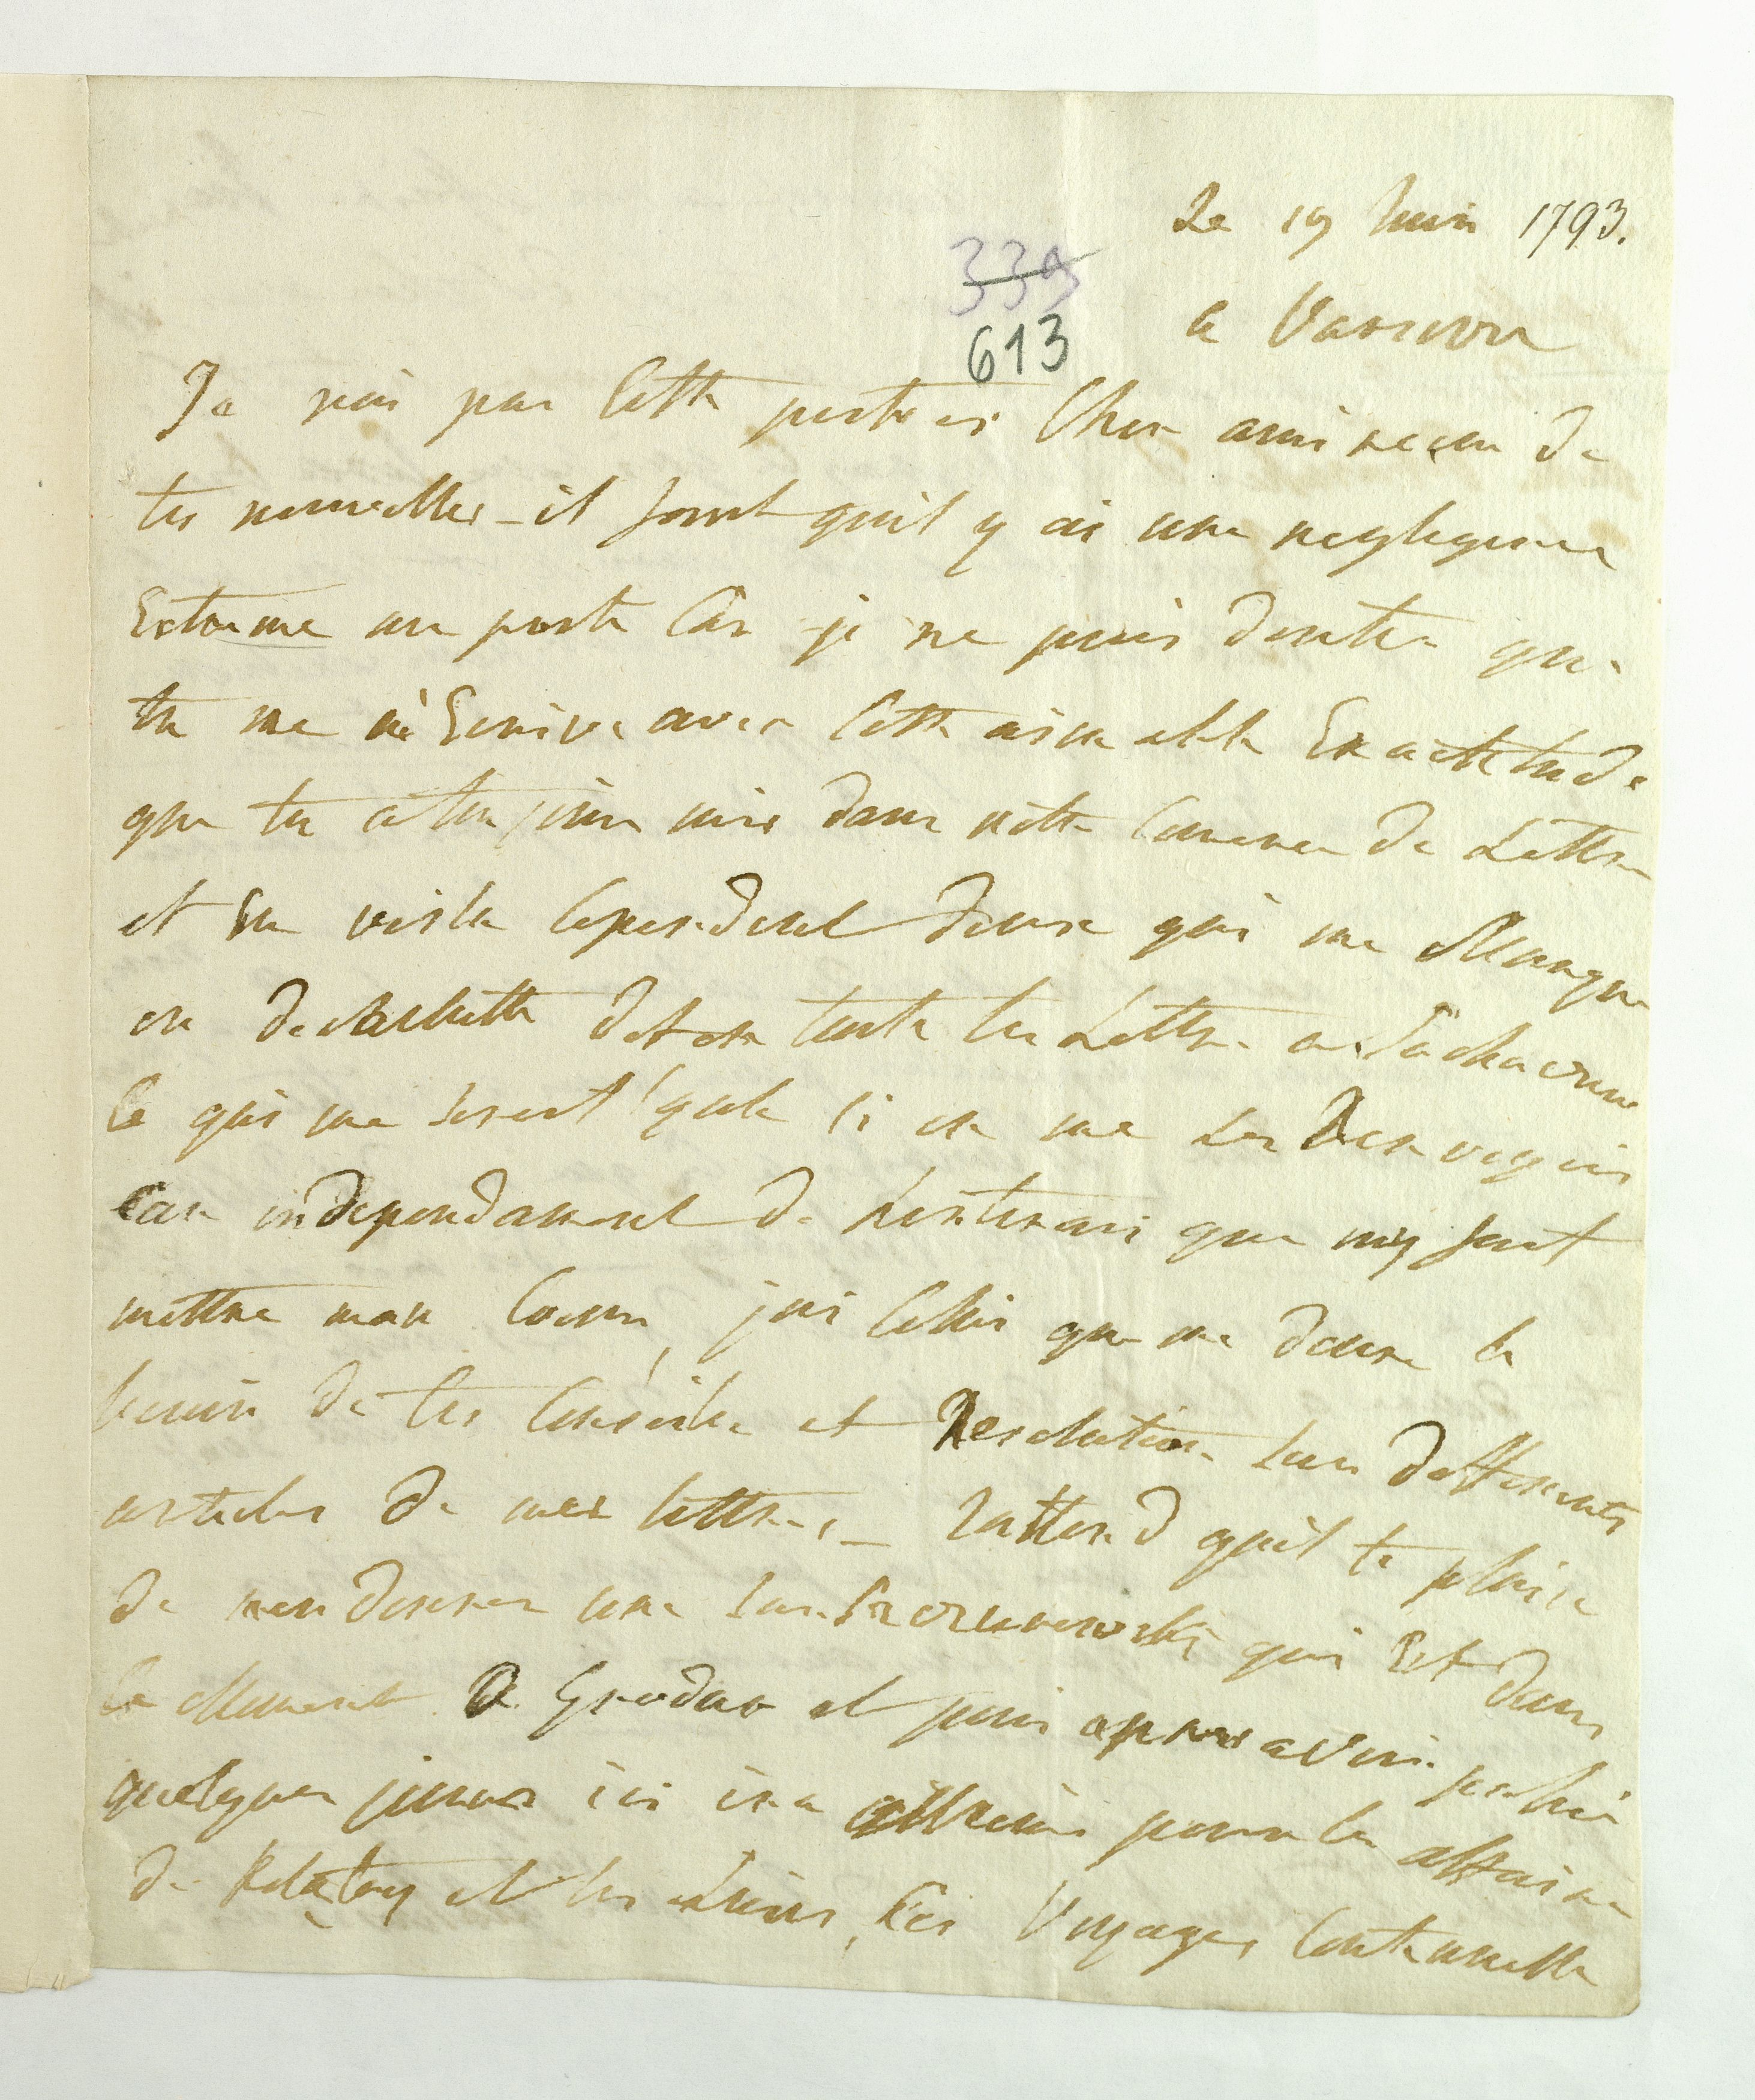 Le 19 Juin 1793.
339
a Varsovie
613
Je nai par cette poste ci Cher ami recu de
tes nouvelles - il faut quil y ai une neglgence
Extreme au poste Car je ne puis douter que
tu ne m'Ecrive avec cette aimable Exactetude
que tu a toujour mis dans notre Comerce de Lettre
et En voila cependent deux qui me Manque
on decachette dit on toute les Lettre a
ce qui me serait egale si on me les Renvoyais
Car independament de que my fait
mettre mon Coeur, jai celui que me donne le
besoin de tes Conseile et Resolution sur differents
articles de mes lettres - Jattend quil te plaise
de men donner une sur qui Est dans
ce Moment a Grodno et puis apres avoir
quelques jours ici ira pour les affaire
de et les siens, Ces Voyages Continuelle